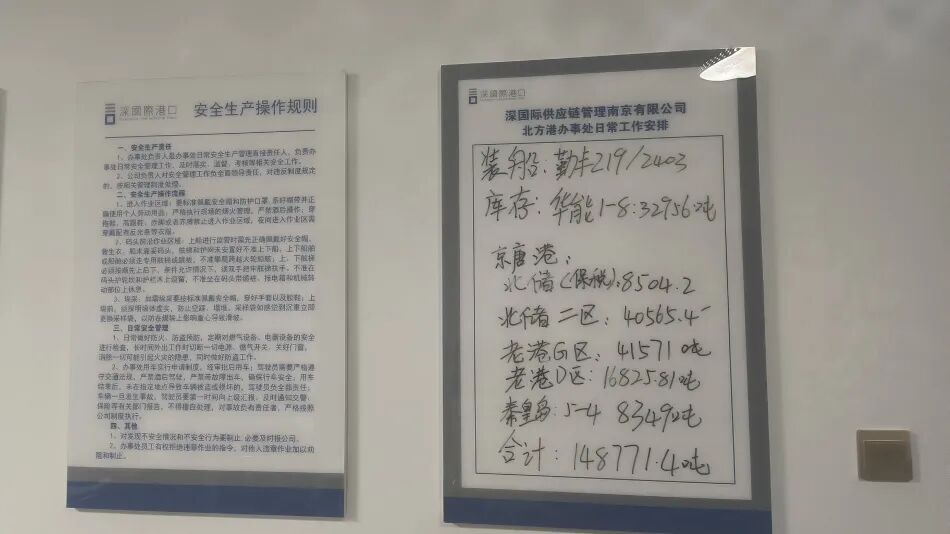 深國際港口
安全生产操作规则
一、安全生产责任
1、办事处负责人是办事处日常安全生产管理直接责任人，负责办
事处日常安全管理工作，及时落实、监督、考核等相关安全工作。
2、公司负责人对安全管理工作负全面领导责任，对违反制度规定
的，按相关管理制度处理。
二、安全生产操作流程
1、进入作业区域：要标准佩戴安全帽和防护口罩，系好帽带并正
确使用个人劳动用品；严格执行现场的烟火管理，严禁酒后操作；穿
拖鞋、高跟鞋、赤脚或者赤膊禁止进入作业区域，夜间进入作业区需
穿戴配有反光条等衣着。
2、码头前沿作业区域：上船进行监管时需先正确佩戴好安全帽、
救生衣，船未靠妥码头、舷梯和护网未安置好不准上下船，上下船舶
或船舶必须走专用舷梯或跳板，不准攀爬跨越火轮船舷；上、下舷梯
必须按顺先上后下、条件允许情况下，须双手把牢舷梯扶手，不准在
码头护轮坎和护栏木上逗留，不准坐在码头带缆桩、接电箱和机械转
动部位上休息。
3、堆采：如需堆采要按标准佩戴安全帽，穿好手套以及胶鞋；上
堤前，须探明煤体虚实，防止空蹈、塌堆，采样袋如感觉到沉重立即
更换采样袋，以防在煤垛上影响重心导致滑坡。
三、日常安全管理
1、日常做好防火、防盗预防，定期对燃气设备、电器设备的安全
进行检查，长时间外出工作时切断一切电源、燃气开关，关好门窗，
消除一切可能引起火灾的隐患，同时做好防盗工作。
2、办事处用车实行申请制度，经审批后用车；驾驶员需要严格遵
守交通法规，严禁酒后驾驶，严禁带故障出车，确保行车安全；用车
结束后，未在指定地点导致车辆被盗或损坏的，驾驶员负全部责任；
车辆一旦发生事故，驾驶员要第一时间向上级汇报，及时通知交警、
保险等有关部门报告，不得擅自处理，对事故负有责任者，严格按照
公司制度执行。
四、其他
1、对发现不安全情况和不安全行为要制止，必要及时报公司。
2、办事处员工有权拒绝违章作业的指令，对他人违章作业加以劝
阻和制止。
深國際港口
深国际供应链管理南京有限公司
北方港办事处日常工作安排
装船：勤丰219/2403
库存：华能1-8:32956吨
京唐港：
北储(保税):8504.2
北储二区：40565.4
老港G区：41571吨
老港D区：16825.81吨
秦皇岛：5-4 8349吨
合计：148771.4吨